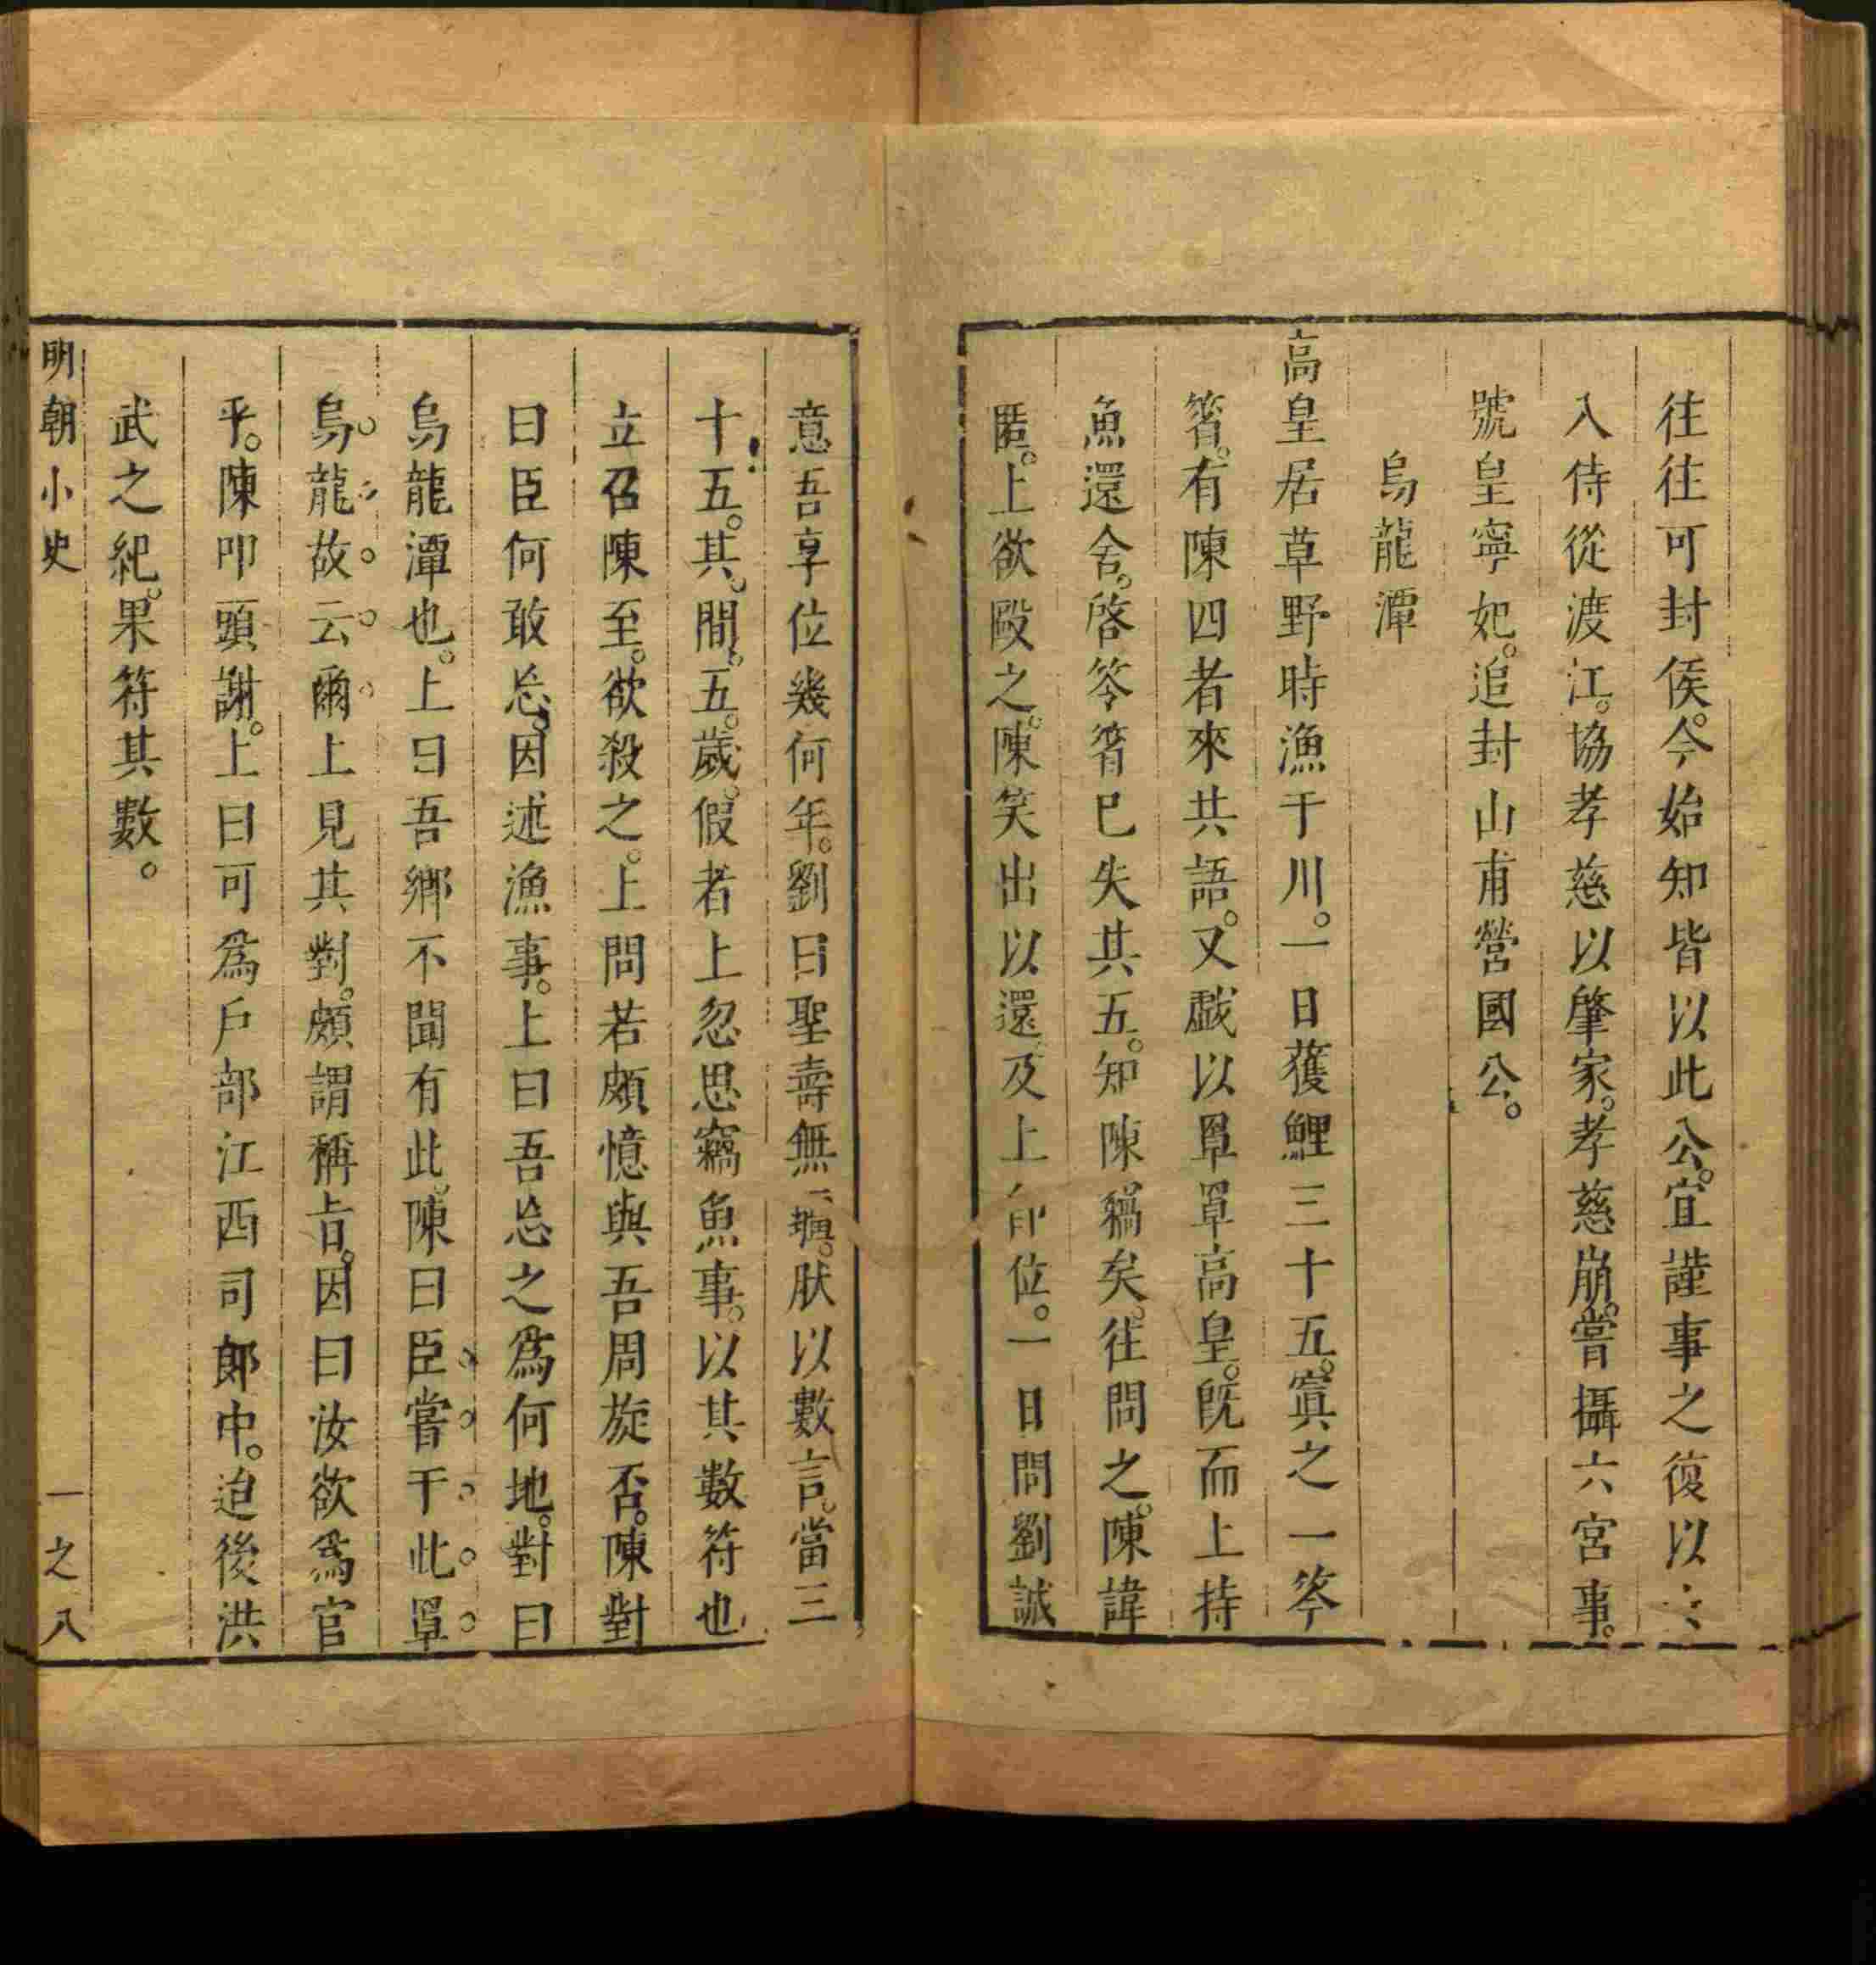 往往可封侯。今始知皆以此公。宜謹事之復以
入侍從渡江。協孝慈以肇家。孝慈崩。嘗攝六宮事。
號皇寧妃。追封山甫營國公。
烏龍潭
高皇居草野時漁于川。一日獲鯉三十五。寘之一笭
箵。有陳四者來共語。又戱以罩罩高皇。旣而上持
魚還舍。啓笭箵已失其五。知陳竊矣。徃問之。陳諱
匿。上欲毆之。陳笑出以還。及上卽位。一日問劉誠
意吾享位幾何年。劉曰聖壽無疆。肰以數言。當三
十五。其。間。五。歲。假者上忽思竊魚事。以其數符也
立召陳至。欲殺之。上問若頗憶與吾周旋否。陳對
曰臣何敢忘。因述漁事。上曰吾忘之爲何地。對曰
烏龍潭也。上曰吾鄉不聞有此。陳曰臣嘗于此罩
烏龍故云爾上見其對。頗謂稱旨。因曰汝欲爲官
乎。陳叩頭謝。上曰可爲戶部江西司郎中。迨後洪
武之紀。果符其數。
明朝小史
一之八